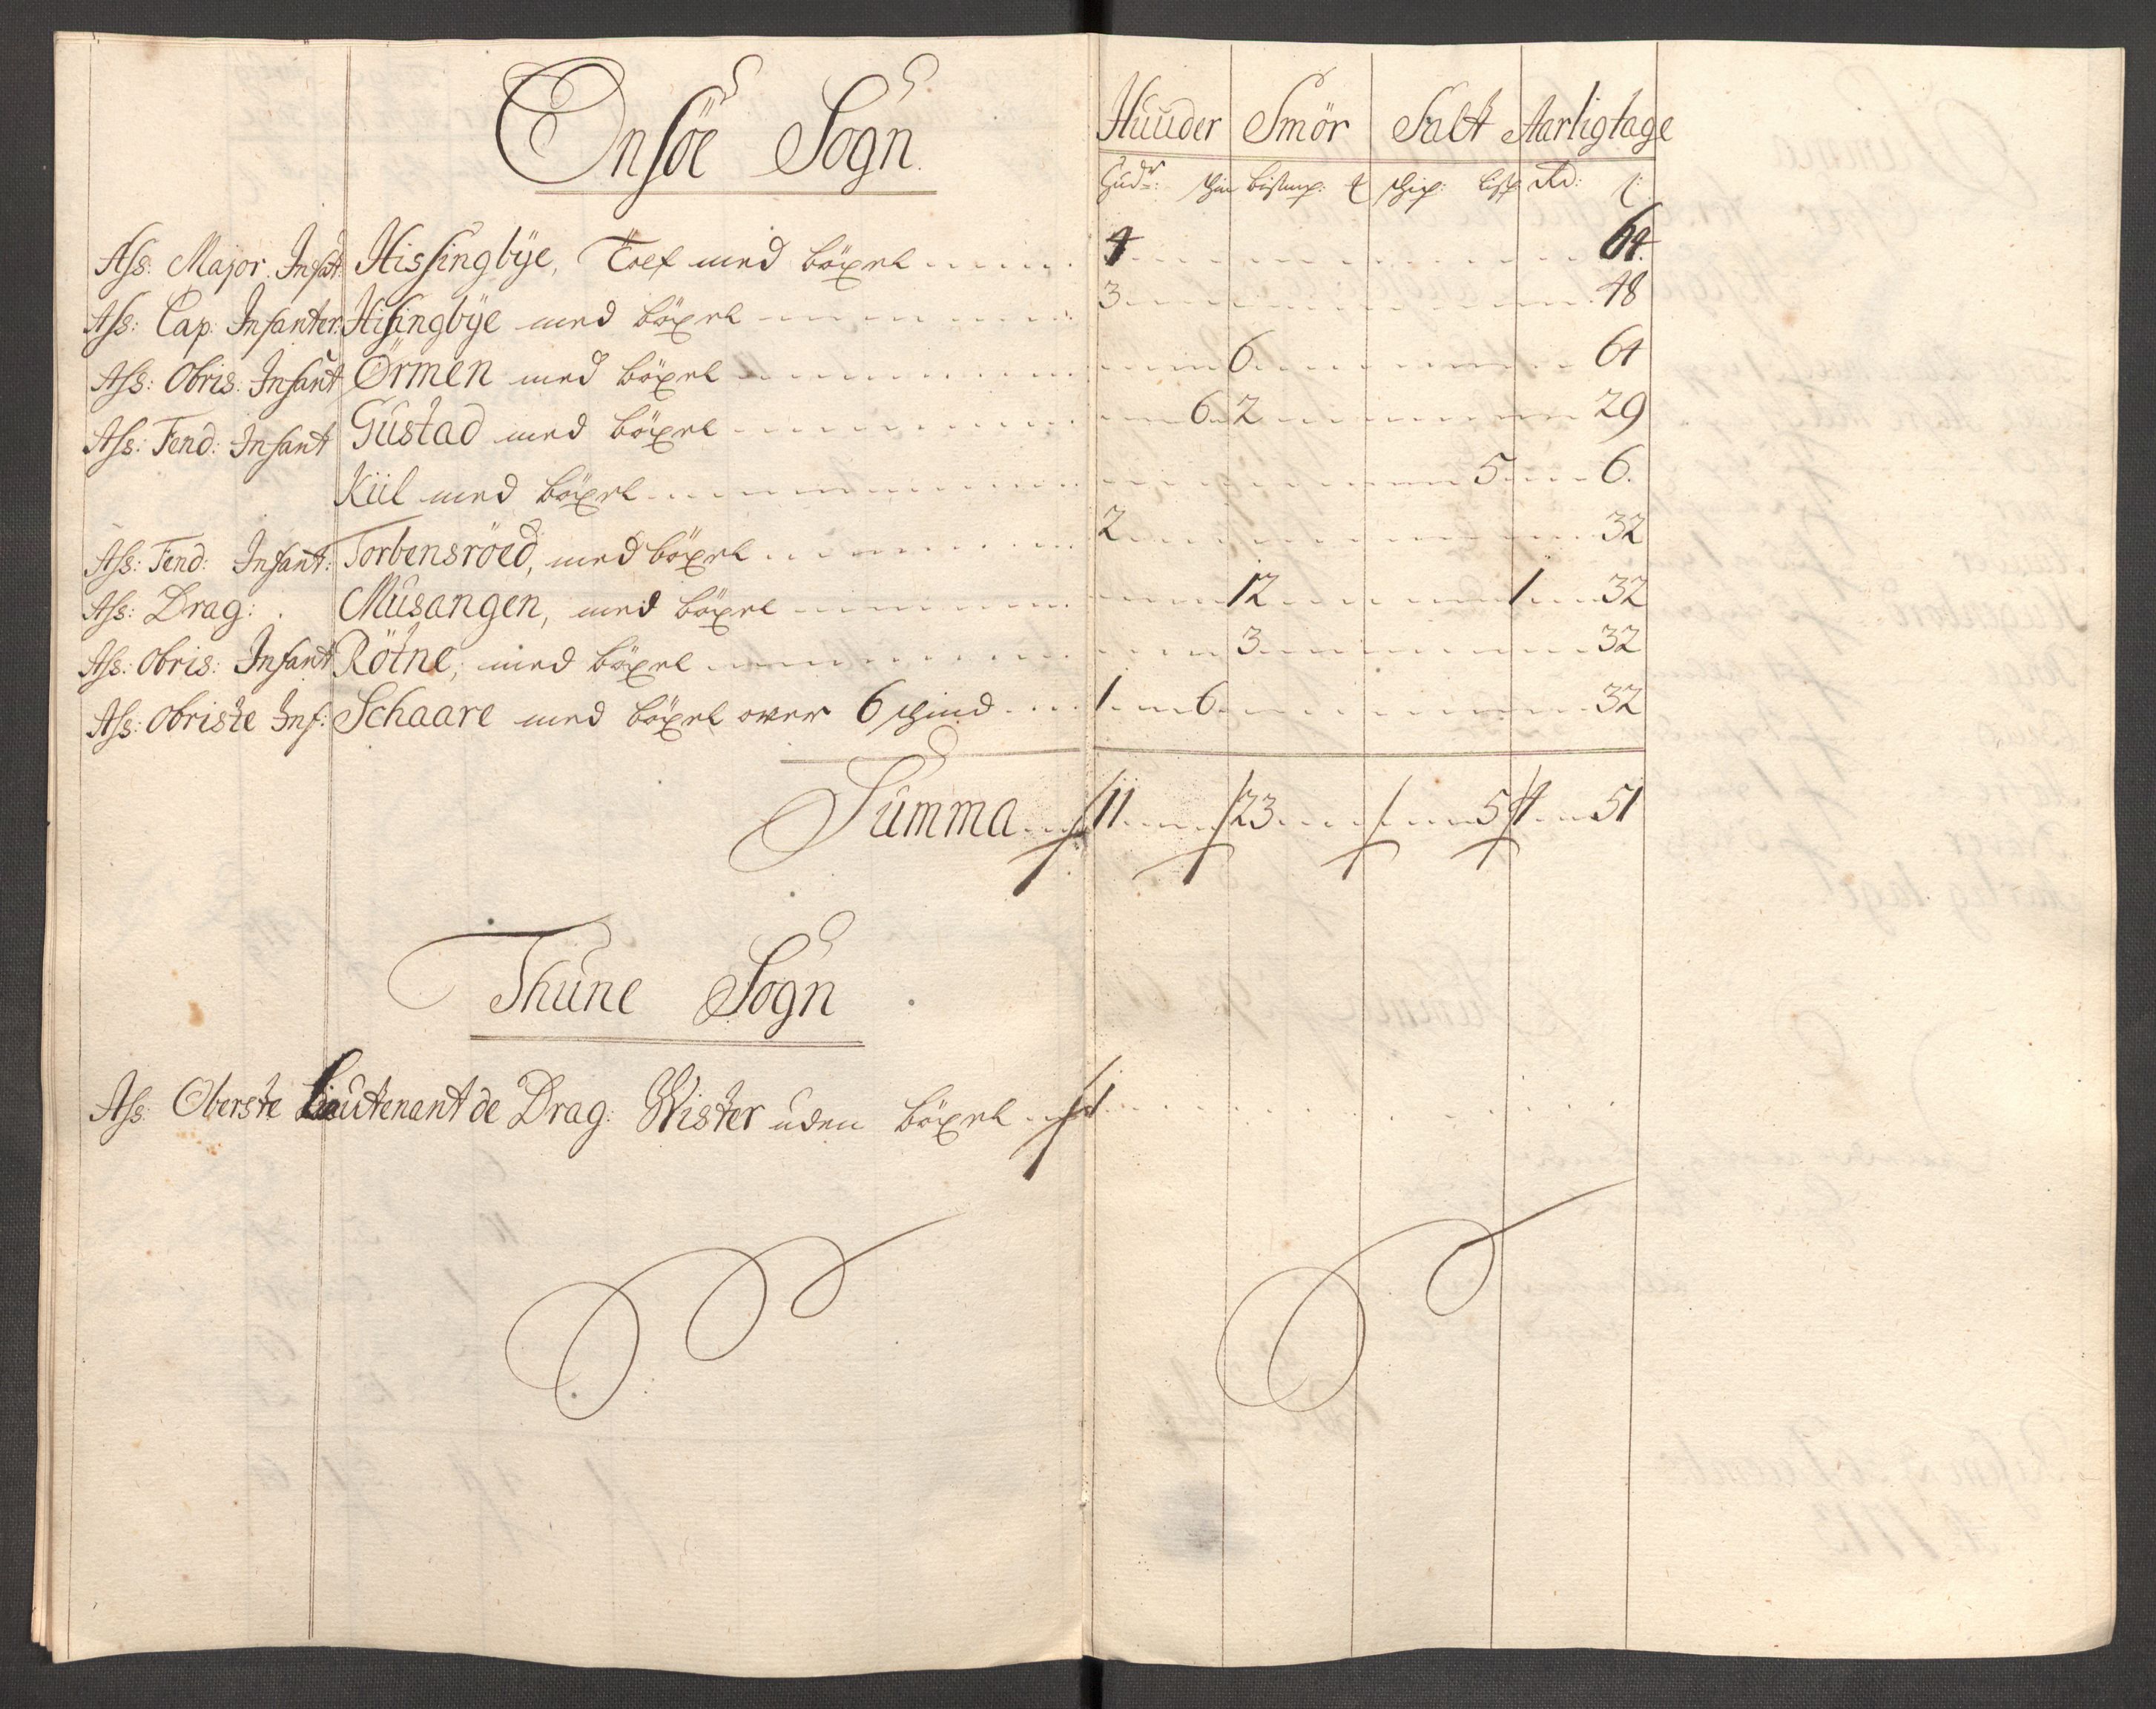 Onsöe Sogn.
Huuder Smör Salt Aarligtage
Hudr: Bismp: Rd:
Ass: Major Infat: Hissingbÿe, Toll med böxel 4 64.
Ass: Cap: Infanter: Hisingbÿe med böxel 3 48
Ass: Obris: Infant Örmen med böxel 6 64
Ass: Fend: Infant Gustad med böxel 6 2 29
Kiil med böxel 5 6.
Ass: Fend: Infant: Torbensröed, med böxel 2 32
Ass: Drag: Musangen, med böxel 12 1 32
Ass: Obris: Infant Rötne, med böxel 3 32
Ass: Obriste Inf: Schaare med böxel over 6 schind 1 6 32
Summa 11 23 5 4 51
Thune Sogn
Ass: Oberste Lieutenant de Drag: Wister uden böxel 1